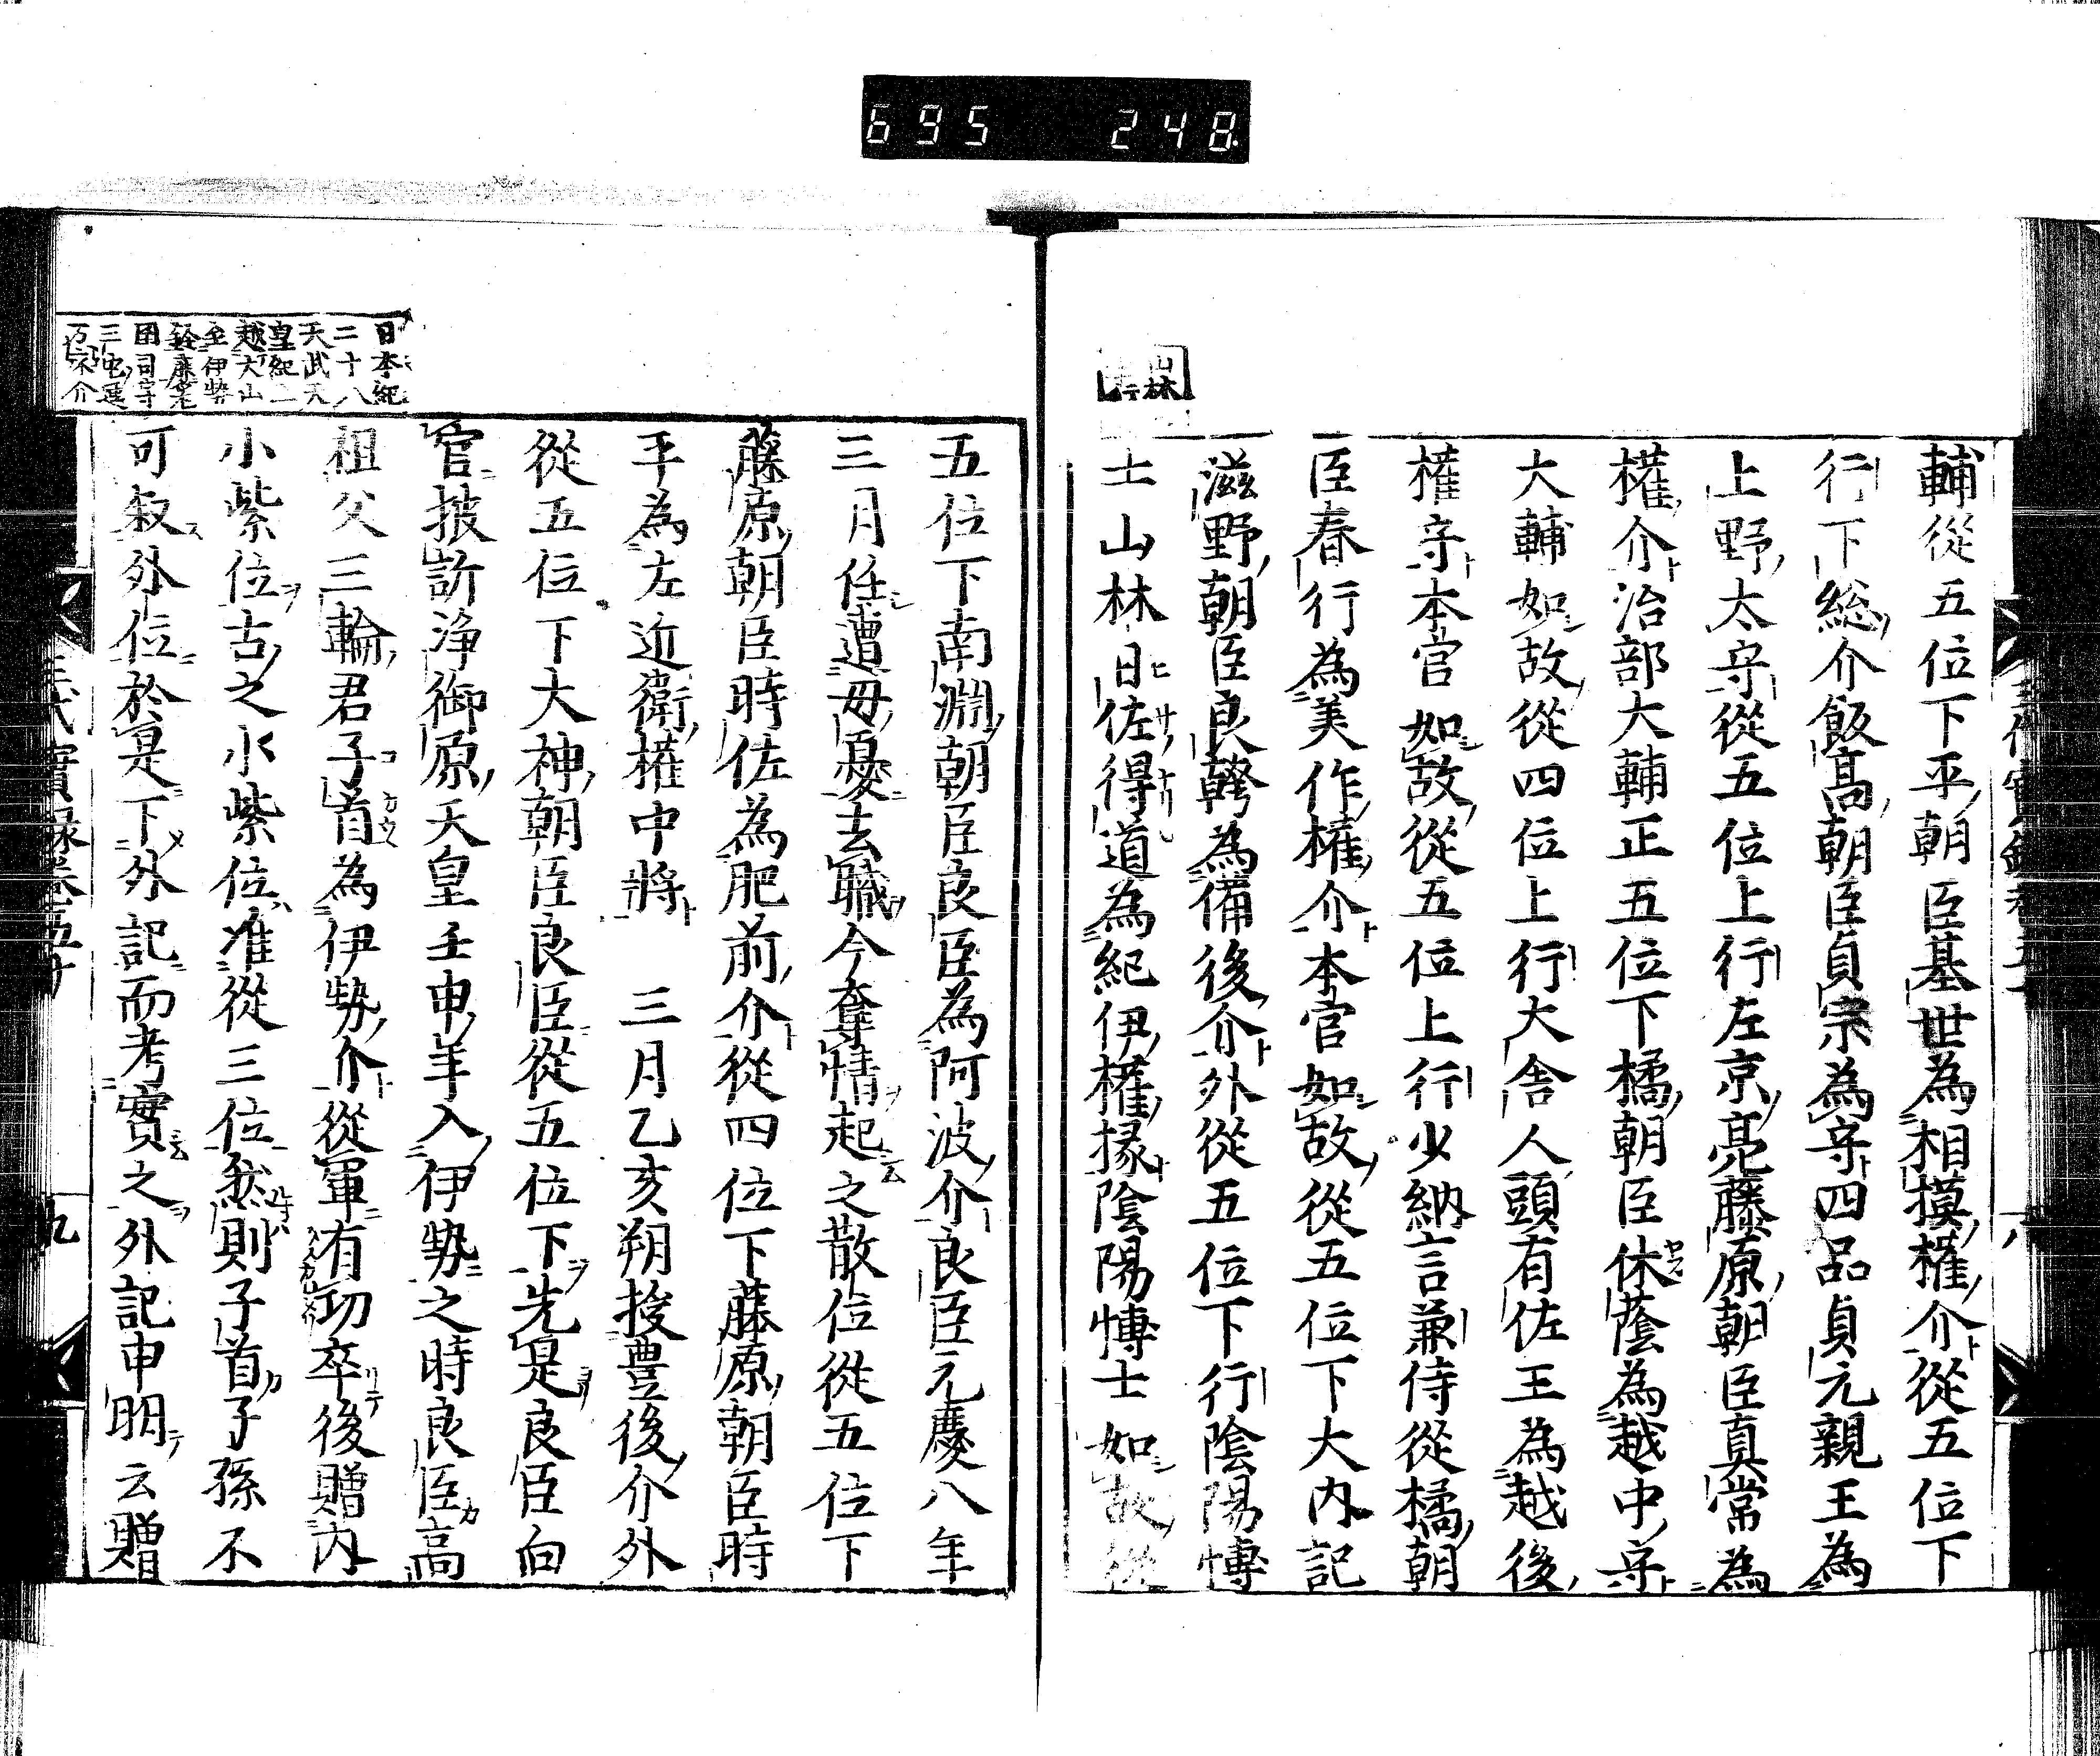 695 248
輔從五位下平朝臣基世為相摸權介從五位下
行下総介飯高朝臣貞宗為守四品貞元親王為
上野太守從五位上行左京亮藤原朝臣真常為
權介治部大輔正五位下橘朝臣休蔭為越中守
大輔如故從四位上行大舎人頭有佐王為越後
權守本官如故從五位上行少納言兼侍從橘朝
臣春行為美作權介本官如故從五位下大内記
滋野朝臣良幹為備後介外從五位下行陰陽博
士山林日佐得道為紀伊權掾陰陽博士如故從
山林
五位下南淵朝臣良臣為阿波介良臣元慶八年
三月任遭母憂去職今奪情起之散位從五位下
藤原朝臣時佐為肥前介從四位下藤原朝臣時
平為左近衛權中將 三月乙亥朔授豊後介外
從五位下大神朝臣良臣從五位下先是良臣向
官披訴浄御原天皇壬申年入伊勢之時良臣高
祖父三輪君子首為伊勢介從軍有功卒後贈内
小紫位古之小紫位准從三位然則子首子孫不
可叙外位於是下外記而考實之外記申明云贈
日本紀
二十八
天武天
皇紀二
越大山
至伊勢
鈴鹿
國司守
三宅
介
三代實録卷五十
九